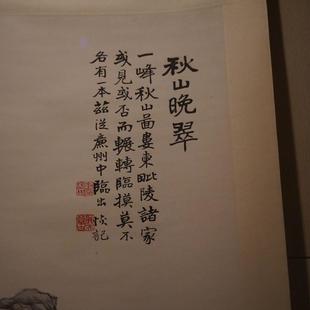 秋山晚翠
一峰秋山啚婁東毗陵諸家
或見或否而輾轉臨摸莫不
各有一本茲從廉州中臨出